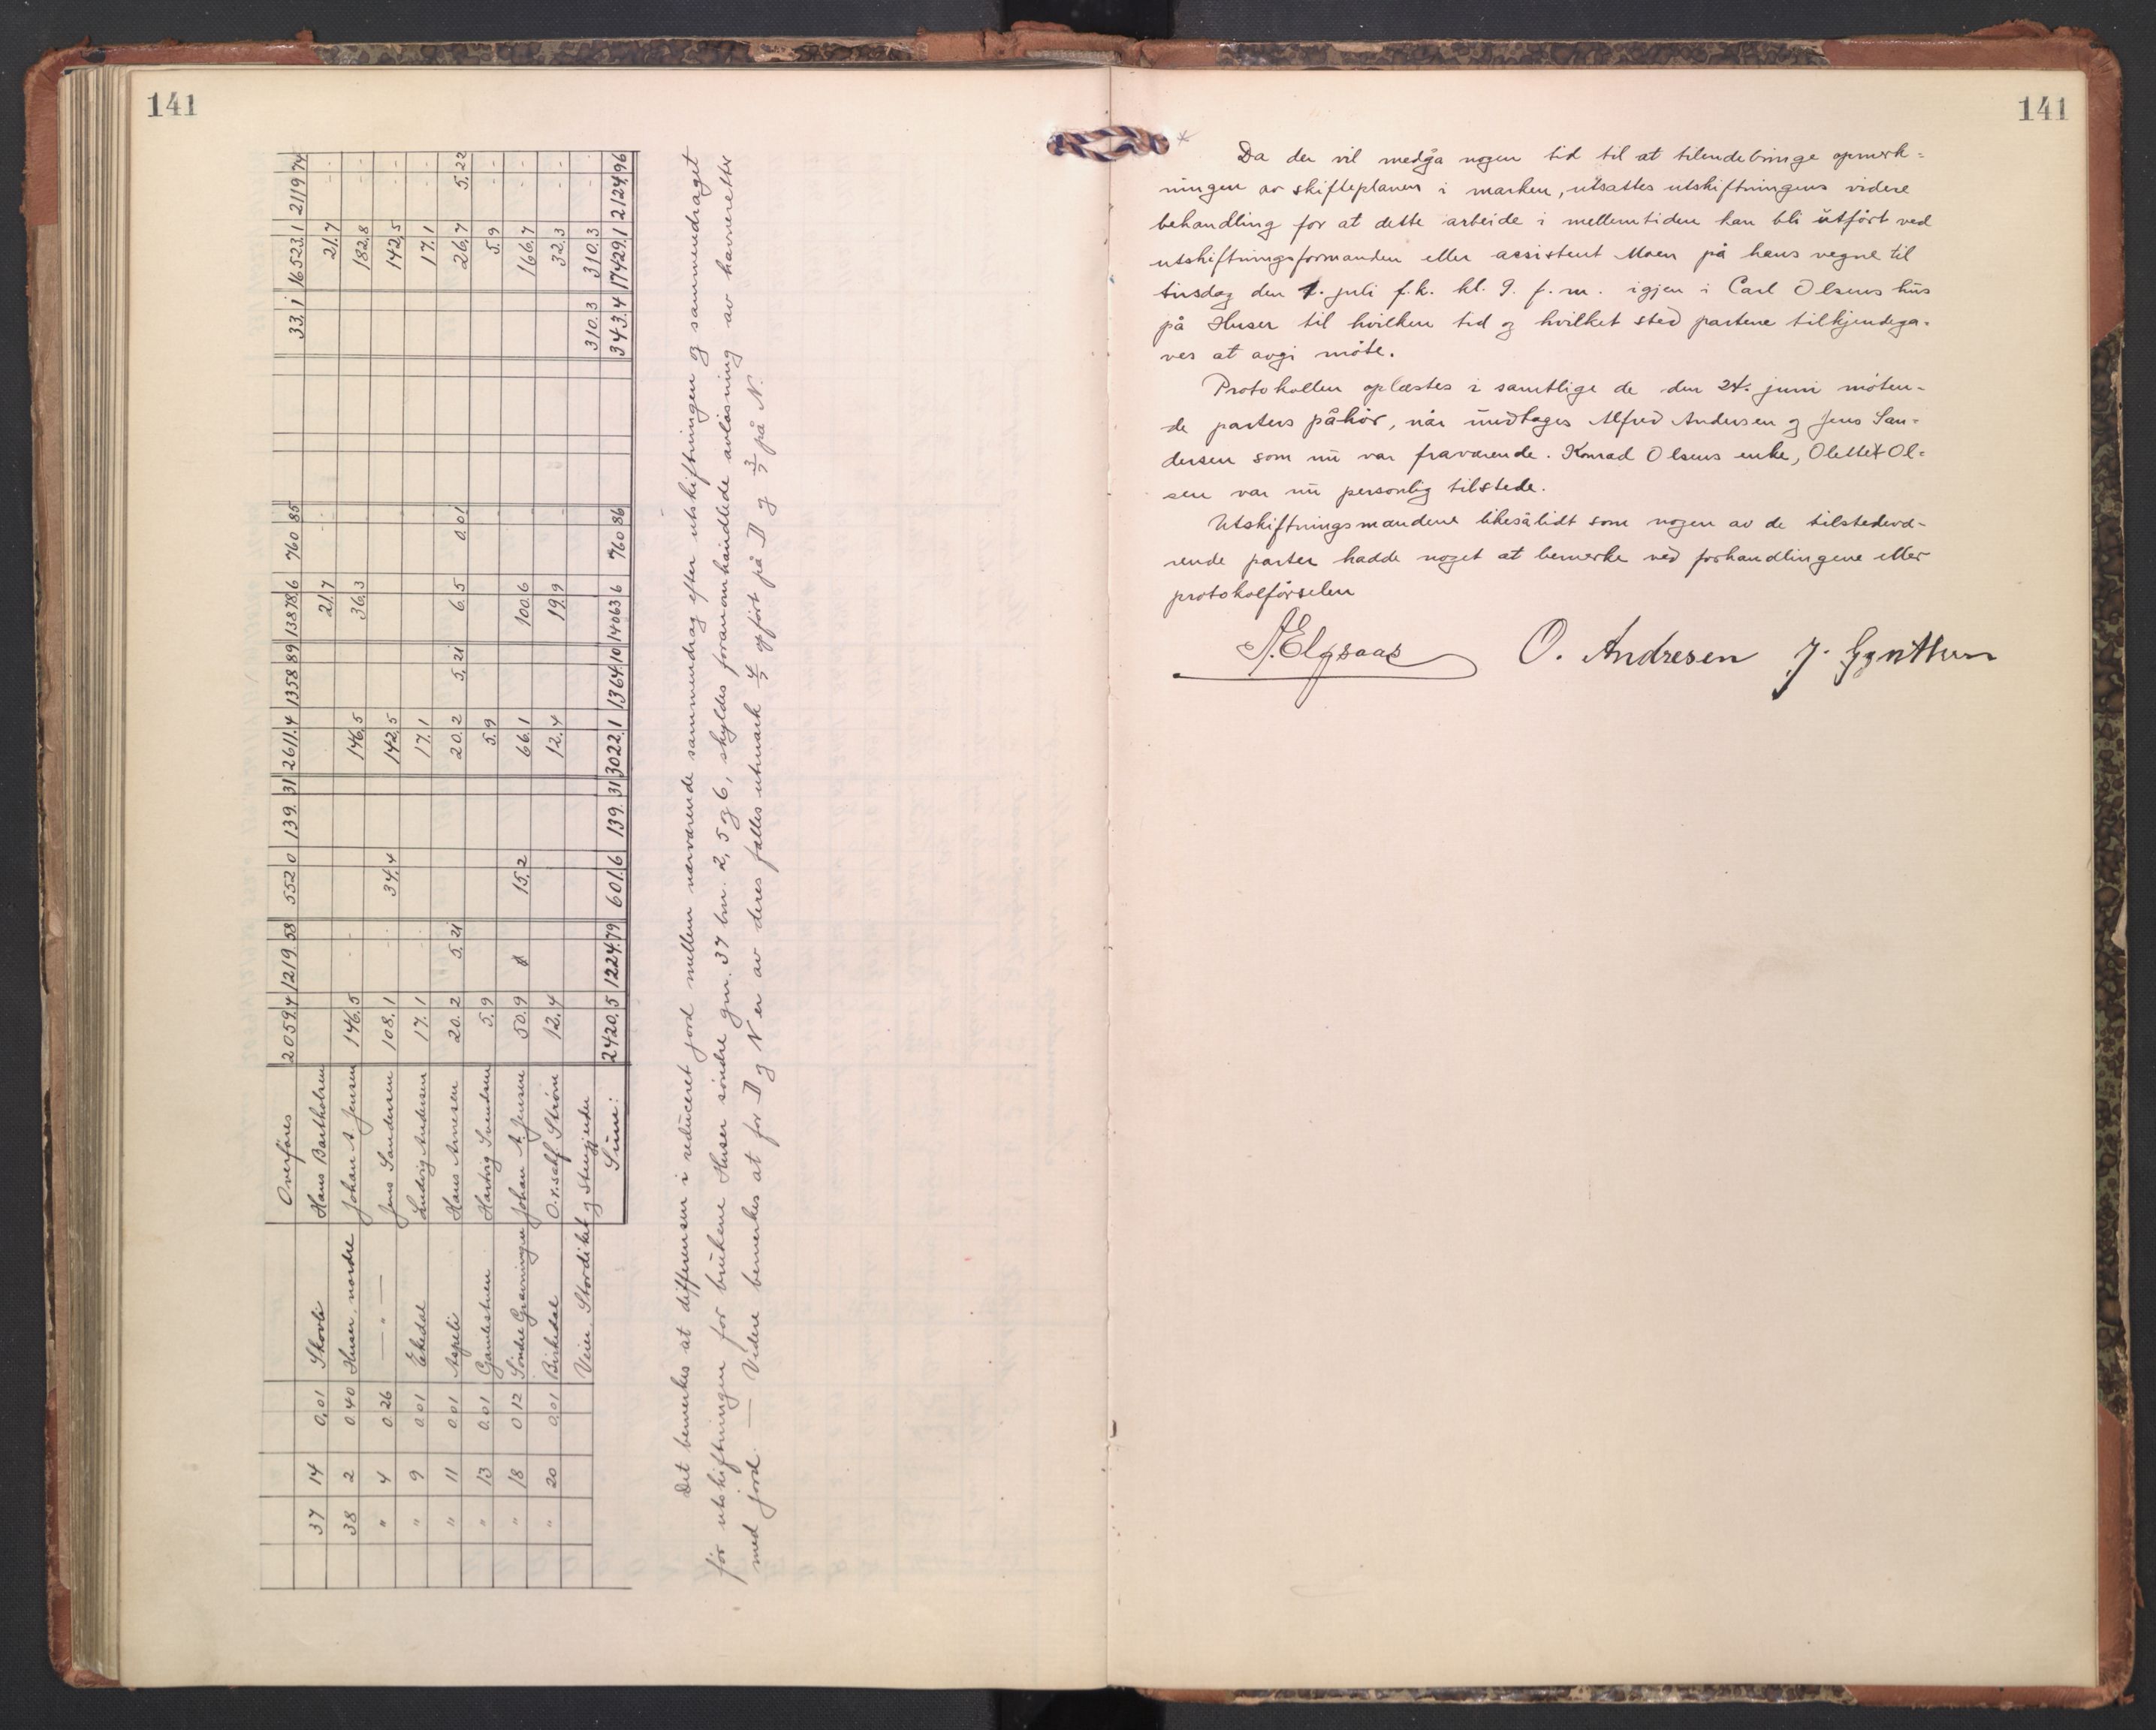 141
Overføres 2059.4 1219 58 552 0 139. 31 2611.4 1358 89 13878.6 760 85 33.1 16523.1 2119 74
37 14 0.01 Skovli Hans Bartholsen 21.7 21.7
38 2 0.40 Huser nordre Johan A. Jensen 146.5 146.5 36.3 182.8
" 4 0.26 — " — Jens Sandersen 108.1 34.4 142.5 142.5
" 9 0.01 Ekedal Ludvig Andersen 17.1 17.1 17.1
" 11 0.01 Aspeli Hans Arnesen 20.2 5.21 20.2 5.21 6.5 0.01 26.7 5.22
" 13 0.01 Gamlestuen Hartvig Svendsen 5.9 5.9 5.9
" 18 0.12 Søndre Grønningen Johan A. Jensen 50.9 15.2 66.1 100.6 166.7
" 20 0.01 Birkedal O. r. sakf. Strøm 12.4 12.4 19.9 32.3
Veier, Stordiket og Stengjerder 310.3 310.3
Sum: 2420.5 1224.79 601.6 139. 31 3022.1 1364.10 14063.6 760 86 343.4 17429.1 2124.96
Det bemerkes at differensen i redüceret jord mellem nærværende sammendrag efter utskiftningen og sammendraget
før utskiftningen for brükene Huser søndre gnr. 37 bnr. 2, 5 og 6, skyldes foranomhandlede avløsning av havneretter
med jord. — Videre bemerkes at for D og N er av deres fælles utmark 4/7 opført på D og 3/7 på N.
141
Da der vil medgå nogen tid til at tilendebringe opmerk=
ningen av skifteplanen i marken, ütsattes utskiftningens videre
behandling for at dette arbeide i mellemtiden kan bli ütført ved
utskiftningsformanden eller assistent Moen på hans vegne til
tirsdag den 1. juli f.k. kl. 9. f.m. igjen i Carl Olsens hüs
på Huser til hvilken tid og hvilket sted partene tilkjendega-
ves at avgi møte.
Protokollen oplæstes i samtlige de den 24. juni møten-
de parters påhør, når ündtages Alfred Andersen og Jens San=
dersen som nü var fraværende. Konrad Olsens enke, Olette Ol=
sen var nü personlig tilstede.
Utskiftningsmændene likesålidt som nogen av de tilstedevæ-
rende parter hadde noget at bemerke ved forhandlingene eller
protokolførselen
N. Elgsaas O. Andresen J. Gynther